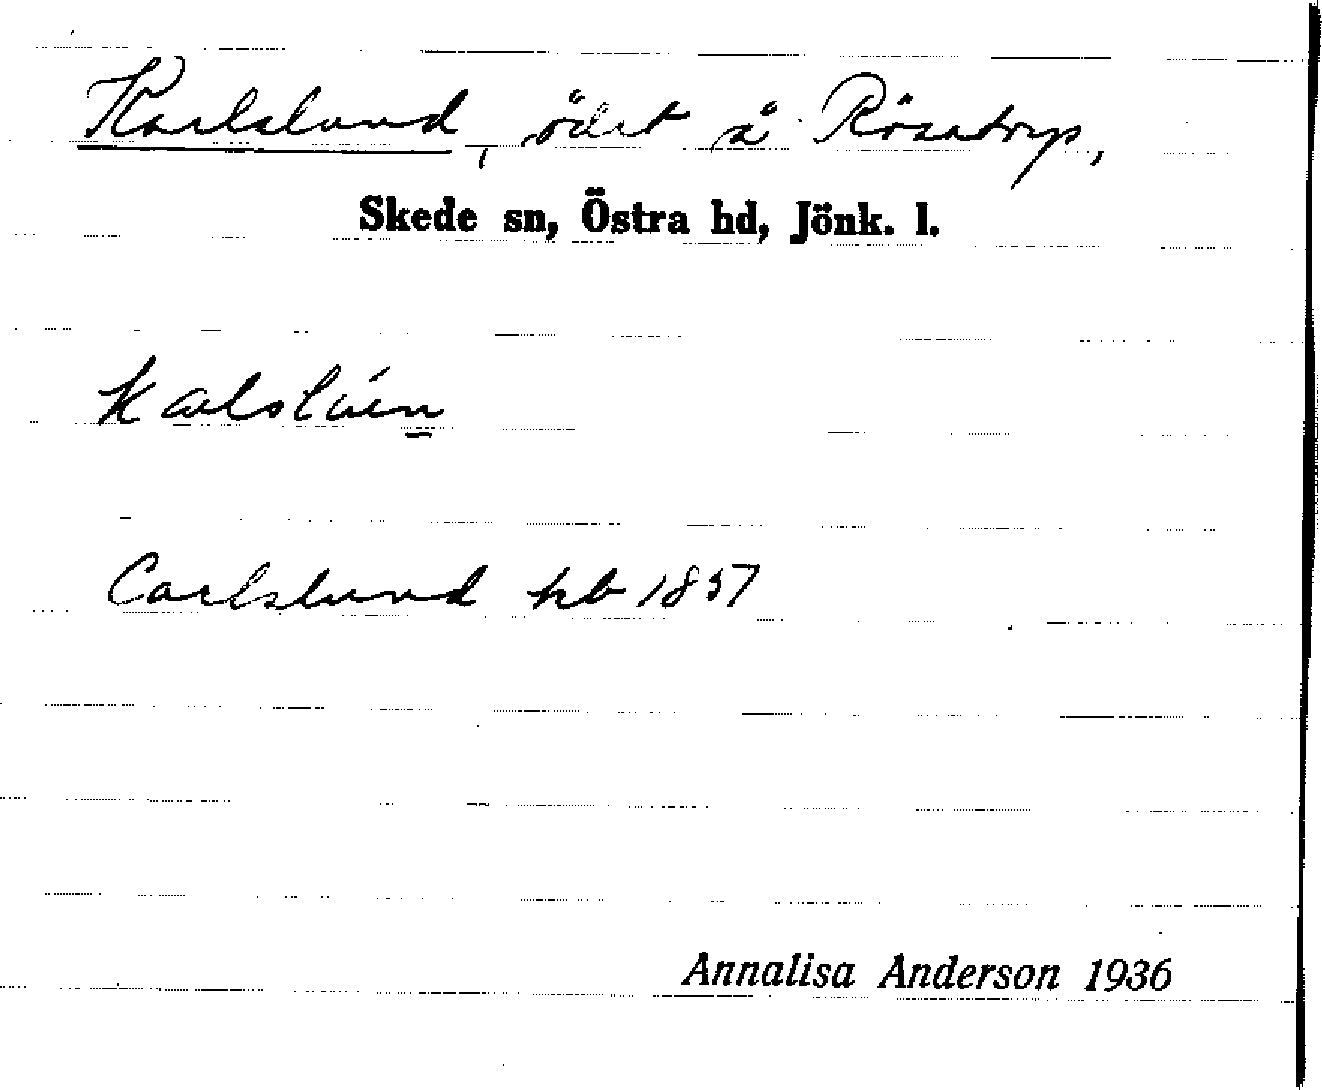 Karlslund, ödet å Rösatorp,
Skede sn, Östra hd, Jönk. l.
Carlslund hb 1857
Annalisa Anderson 1936